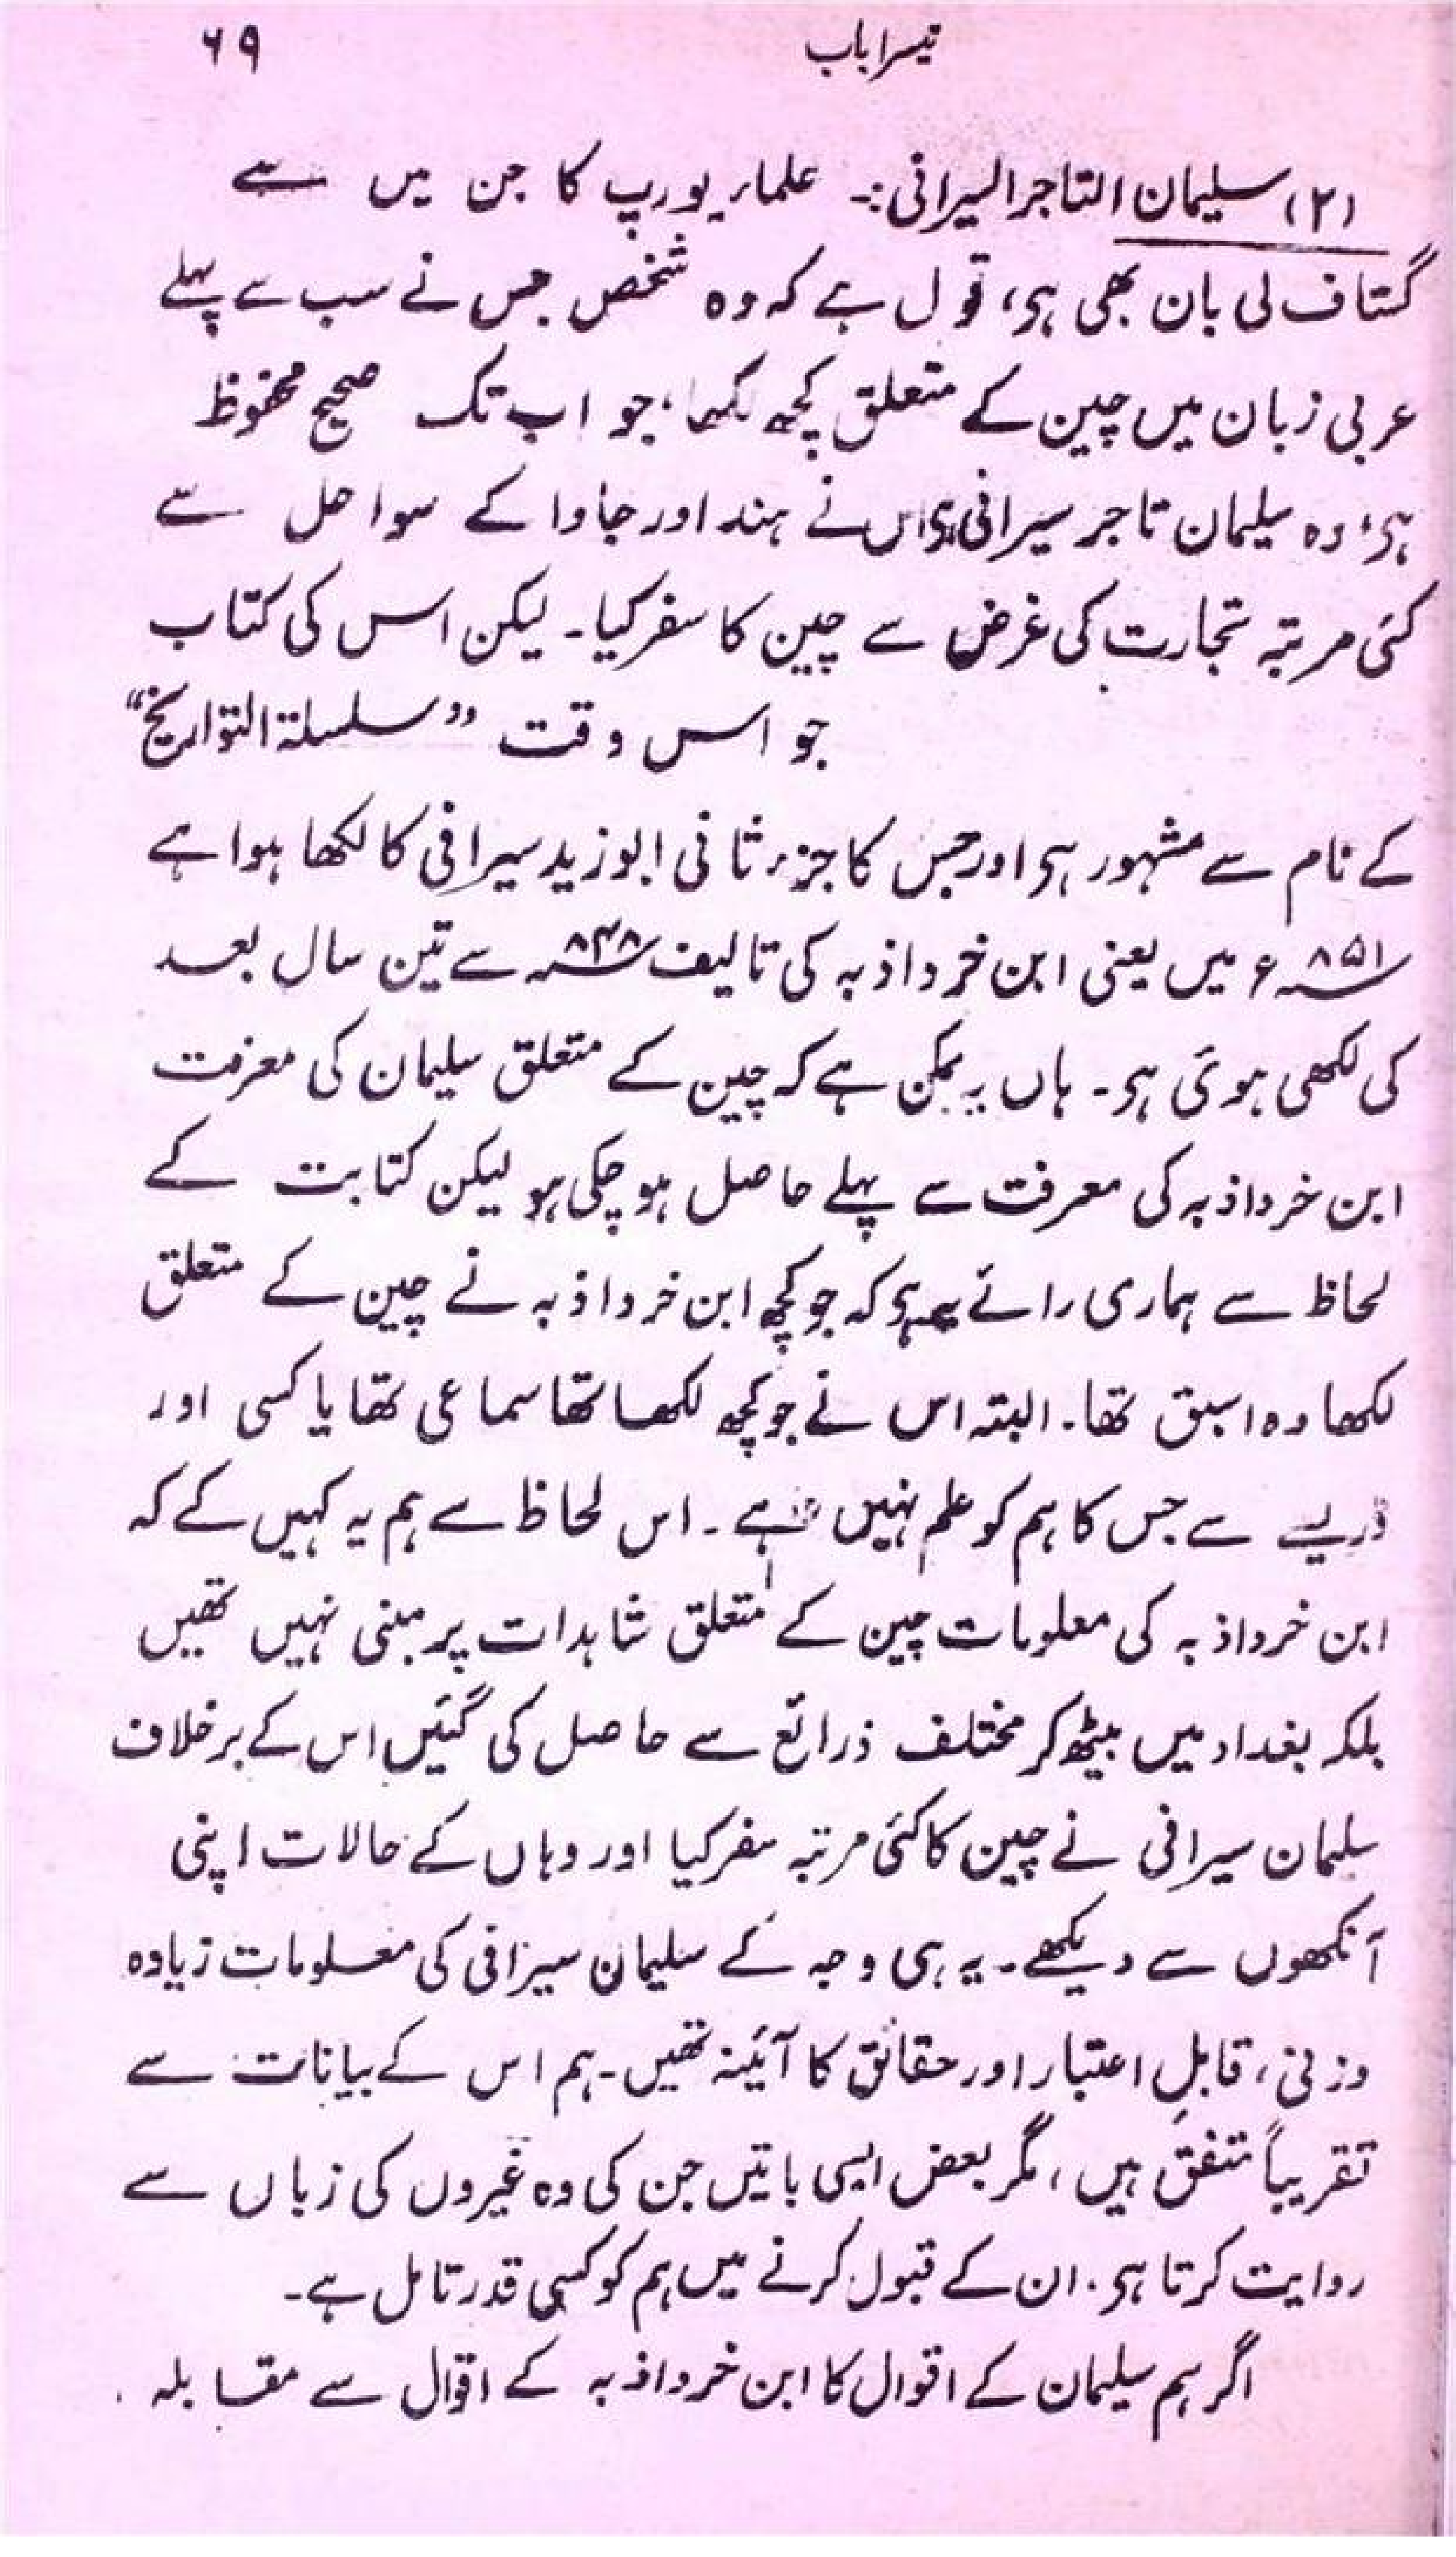 تیسرا باب ۶۹
(۲) سلیمان التاجر السیرافی:۔ علماء یورپ کا جن میں سے
گستاف لی بان بھی ہی، قول ہے کہ وہ شخص جس نے سب سے پہلے
عربی زبان میں چین کے متعلق کچھ لکھا، جو اب تک صحیح محفوظ
ہی، وہ سلیمان تاجر سیرافی ہی اس نے ہند اور جاوا کے سواحل سے
کئی مرتبہ تجارت کی غرض سے چین کا سفر کیا۔ لیکن اس کی کتاب
جو اس وقت ”سلسلۃ التواریخ“
کے نام سے مشہور ہی اور جس کا جزء ثانی ابوزید سیرافی کا لکھا ہوا ہے
۸۵۱ء میں یعنی ابن خرداذبہ کی تالیف ۸۴۸ سے تین سال بعد
کی لکھی ہوئی ہی۔ ہاں یہ ممکن ہے کہ چین کے متعلق سلیمان کی معرفت
ابن خرداذبہ کی معرفت سے پہلے حاصل ہو چکی ہو لیکن کتابت کے
لحاظ سے ہماری رائے یہ ہی کہ جو کچھ ابن خرداذبہ نے چین کے متعلق
لکھا وہ اسبق تھا۔ البتہ اس نے جو کچھ لکھا تھا سماعی تھا یا کسی اور
ذریے سے جس کا ہم کو علم نہیں ہے۔ اس لحاظ سے ہم یہ کہیں گے کہ
ابن خرداذبہ کی معلومات چین کے متعلق شاہدات پر مبنی نہیں تھیں
بلکہ بغداد میں بیٹھ کر مختلف ذرائع سے حاصل کی گئیں اس کے برخلاف
سلیمان سیرافی نے چین کا کئی مرتبہ سفر کیا اور وہاں کے حالات اپنی
آنکھوں سے دیکھے۔ یہ ہی وجہ کے سلیمان سیرافی کی معلومات زیادہ
وزنی، قابلِ اعتبار اور حقائق کا آئینہ تھیں۔ ہم اس کے بیانات سے
تقریباً متفق ہیں، مگر بعض ایسی باتیں جن کی وہ غیروں کی زباں سے
روایت کرتا ہی۔ ان کے قبول کرنے میں ہم کو کسی قدر تامل ہے۔
اگر ہم سلیمان کے اقوال کا ابن خرداذبہ کے اقوال سے مقابلہ